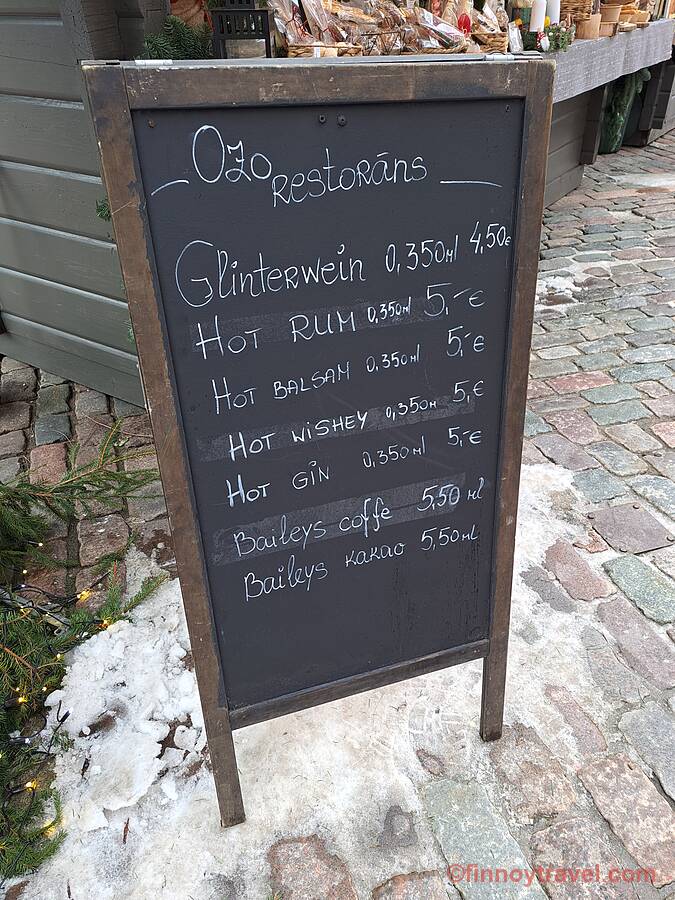 Ozo restorāns
Glinterwein 0,350ml 4,50€
Hot Rum 0,350ml 5,-€
Hot Balsam 0,350ml 5,-€
Hot Wishey 0,350ml 5,-€
Hot Gin 0,350ml 5,-€
Baileys coffe 5,50 ml
Baileys kakao 5,50ml
©finnoytravel.com